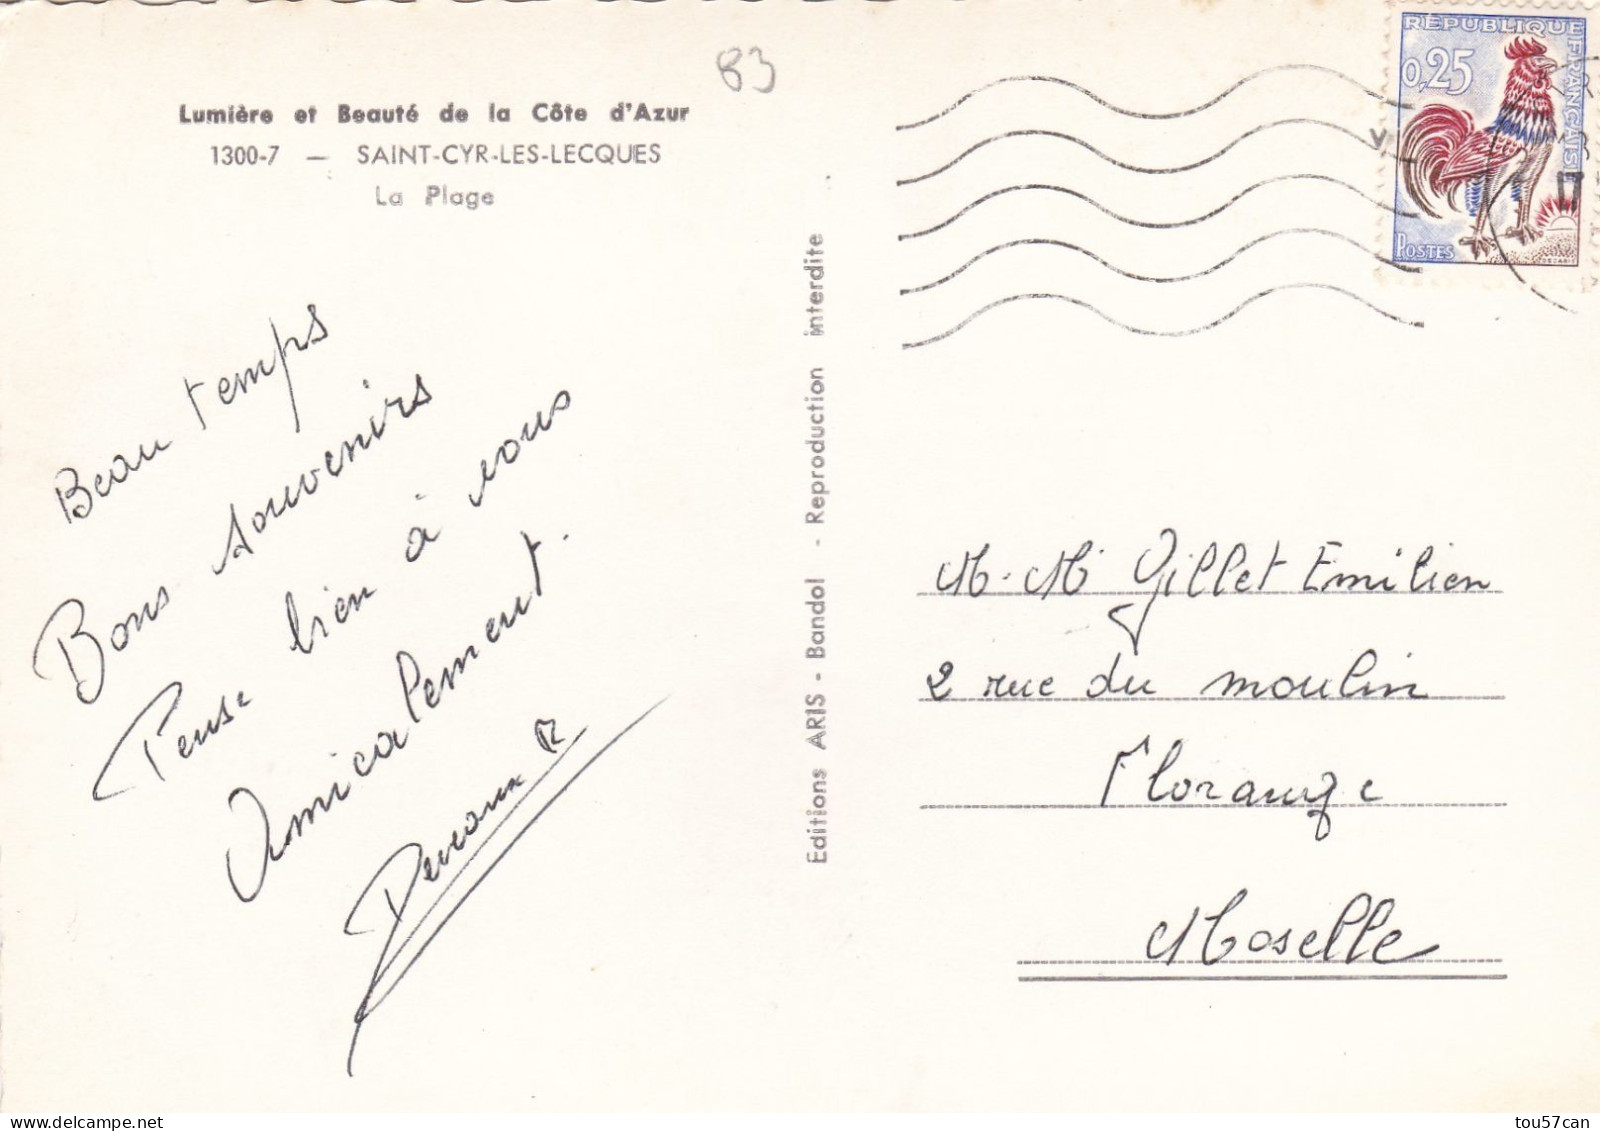 83
Lumière et Beauté de la Côte d'Azur
1300-7 — SAINT-CYR-LES-LECQUES
La Plage
Beau temps
Bons souvenirs
Pense bien à vous
Amicalement.
Editions ARIS - Bandol - Reproduction interdite
RÉPUBLIQUE FRANÇAISE
0,25
POSTES
DECARIS
M. M Gillet Emilien
2 rue du moulin
Florange
Moselle
tou57can